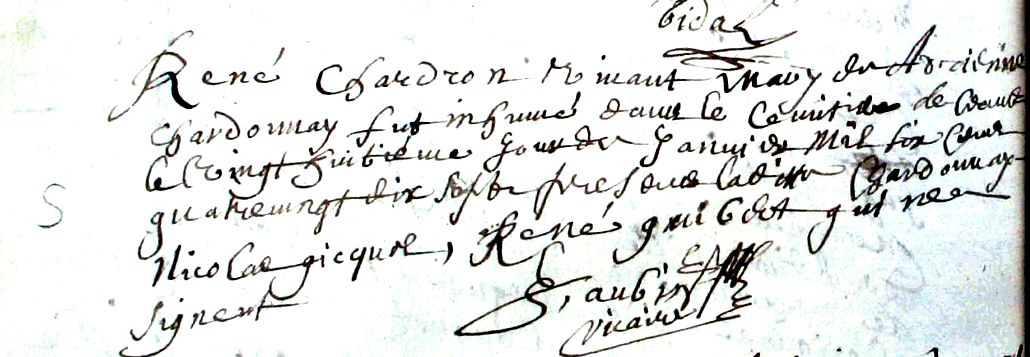 Bidal
René Chardron vivant Mary de
Chardonnay fut inhumé dans le Cemitiere de Ceans
le Vingt huitiéme Jour de Janvier Mil six Cens
quatrevingt dix Sept presens laditte Chardonnay
Nicolas gicquel, René guibert qui ne
signent
S, aubin
vicaire